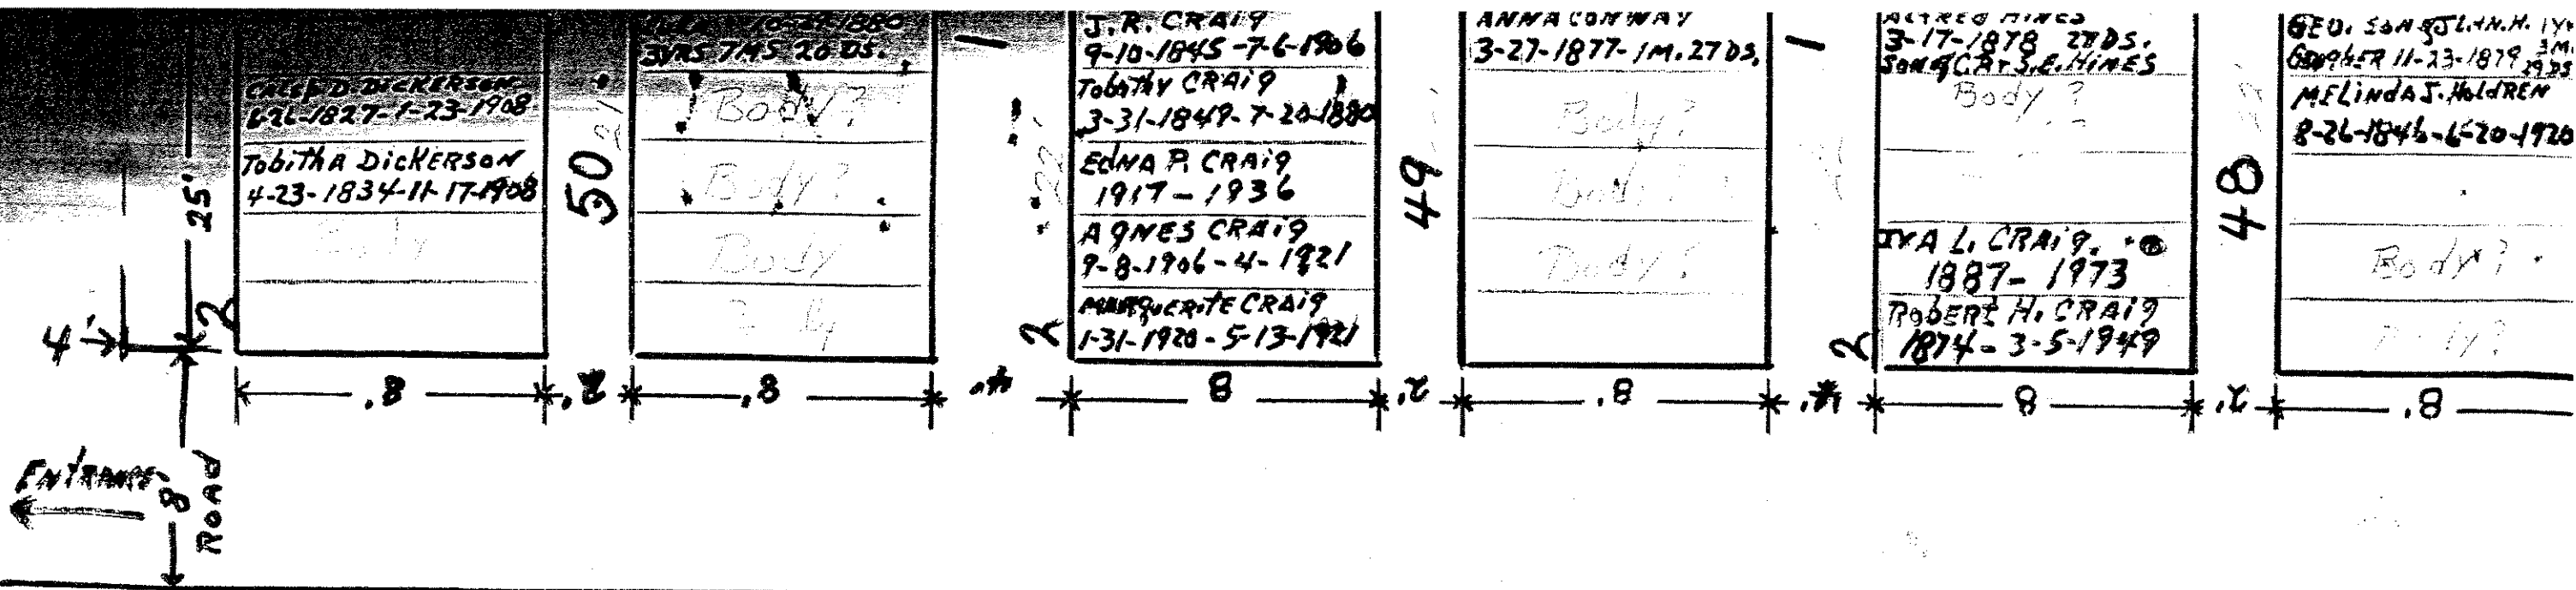 10-29-1880
3YRS 7MS 20 DS.
CALEB D. DICKERSON
6-26-1827-1-23-1908
TobiTHA DICKERSON
4-23-1834-11-17-1908
Body
25'
4'
2
50
21
Body?
Body?
Body
J.R. CRAIG
9-10-1845-7-6-1906
TobiTHY CRAIG
3-31-1849-7-20-1880
EDNA P. CRAIG
1917-1936
AGNES CRAIG
9-8-1906-4-1921
MARQUERITE CRAIG
1-31-1920-5-13-1921
2
49
ANNA CONWAY
3-27-1877-1M.27DS.
Body?
Body?
Body?
ALFRED HINES
3-17-1878 27DS.
SON OF C.P.+S.E. HINES
Body?
IVA L. CRAIG.
1887-1973
ROBERT H. CRAIG
1874-3-5-1949
2
48
GEO. SON OF J.L.+N.H. 1Y.
11-23-1879 3M. 29DS
MELINDA J. HOLDREN
8-26-1846-6-20-1920
Body?
Body?
8'
2'
8'
4'
8
2'
8'
4'
8
2'
8'
ENTRANCE
8'
ROAD